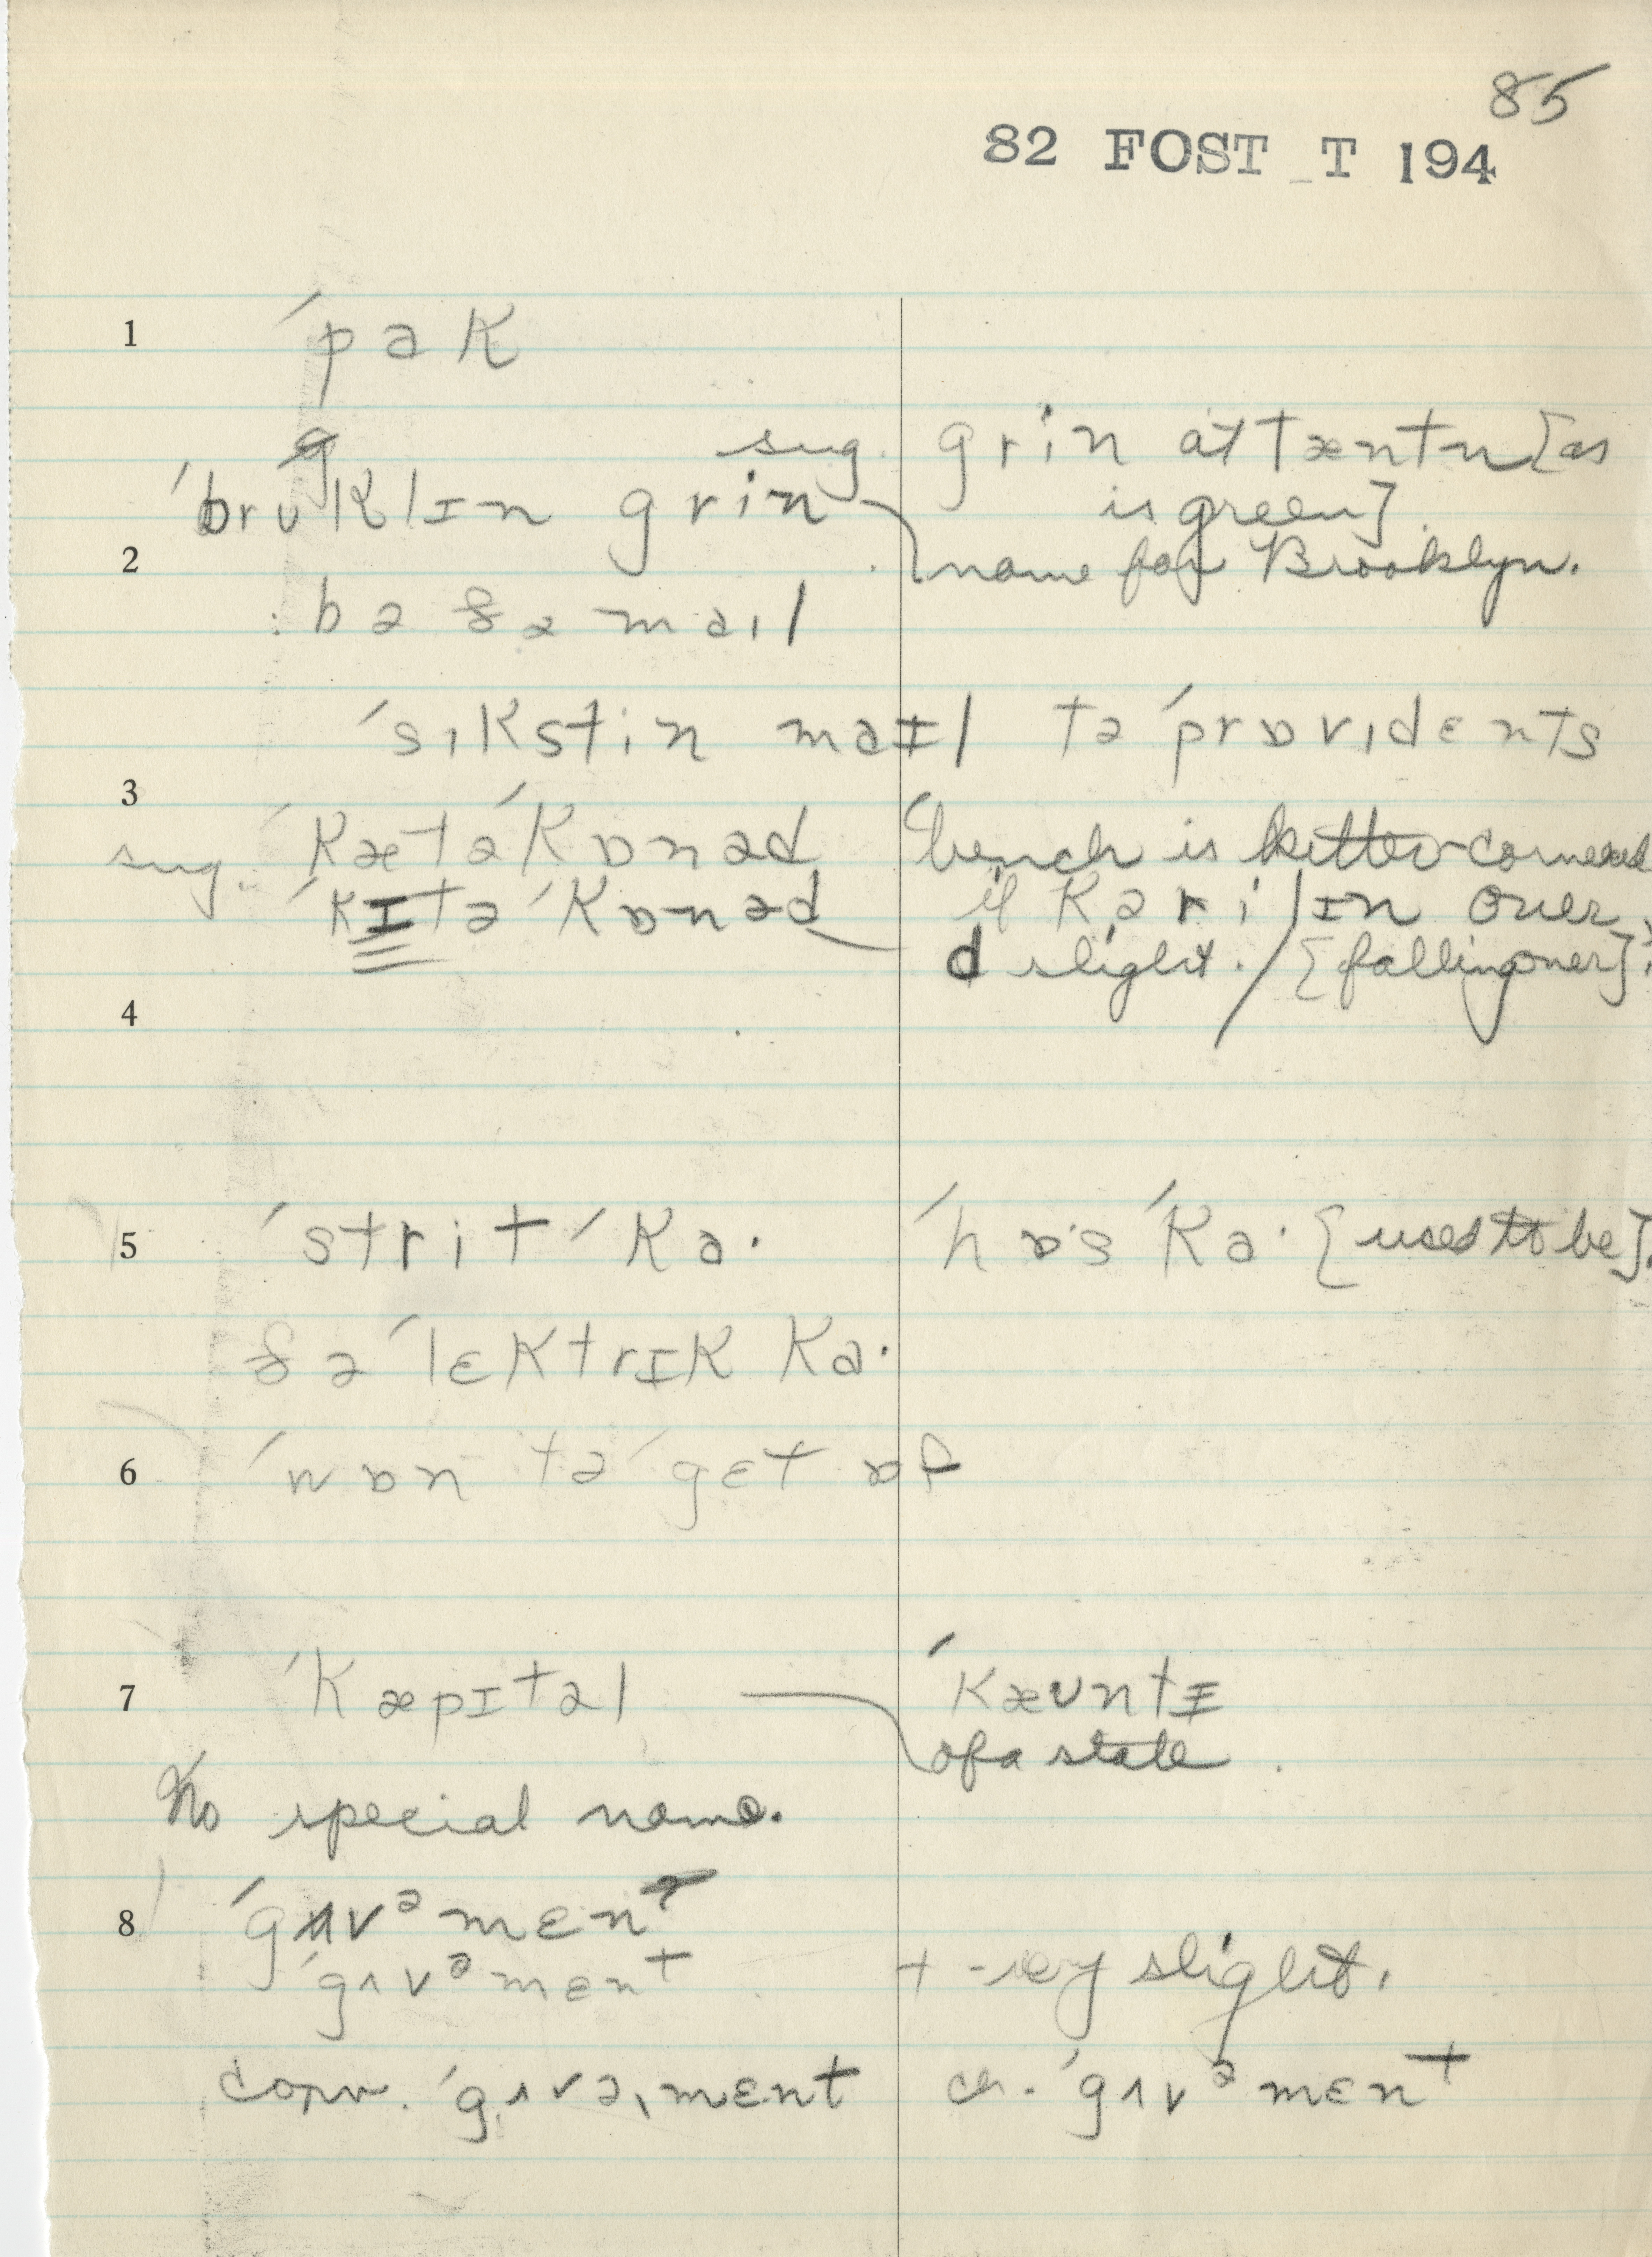 85
82 FOST T 194
1 ˈpak
sug. grin at Tæntn [as
ˈbrʊklɪn grin is green].
2 name for Brooklyn.
bə ðə mail
ˈsɪkstin maɪl tə ˈprɒvɪdɛnts
3
sug. ˈkætəˈkɒnəd bench is kitter-cornered
ˈkɪtəˈkɒnəd if kəriˈlɪn over,
d slight. / [falling over].
4
5 ˈstrit ˈka· ˈhɒs ˈka· [used to be].
ðə ˈlɛktrɪk ka·
6 ˈwɒn tə ˈgɛt ɒf
7 ˈkæpɪtəl ˈkæʊntɪ
of a state.
No special name.
8 ˈgʌvᵊmɛnᵗ
ˈgʌvᵊmɛnᵗ t - very slight.
conv. ˈgʌvəˌmɛnt cr. ˈgʌvᵊmɛnᵗ